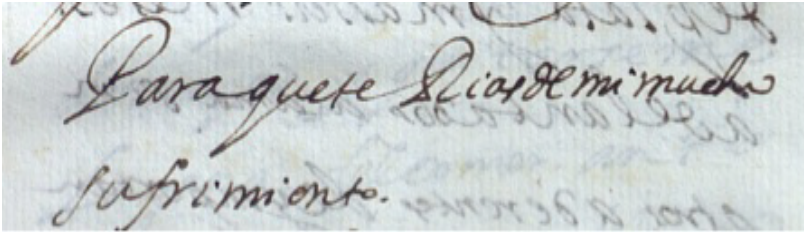 Paraquete Rias de mi mucho
sufrimiento.